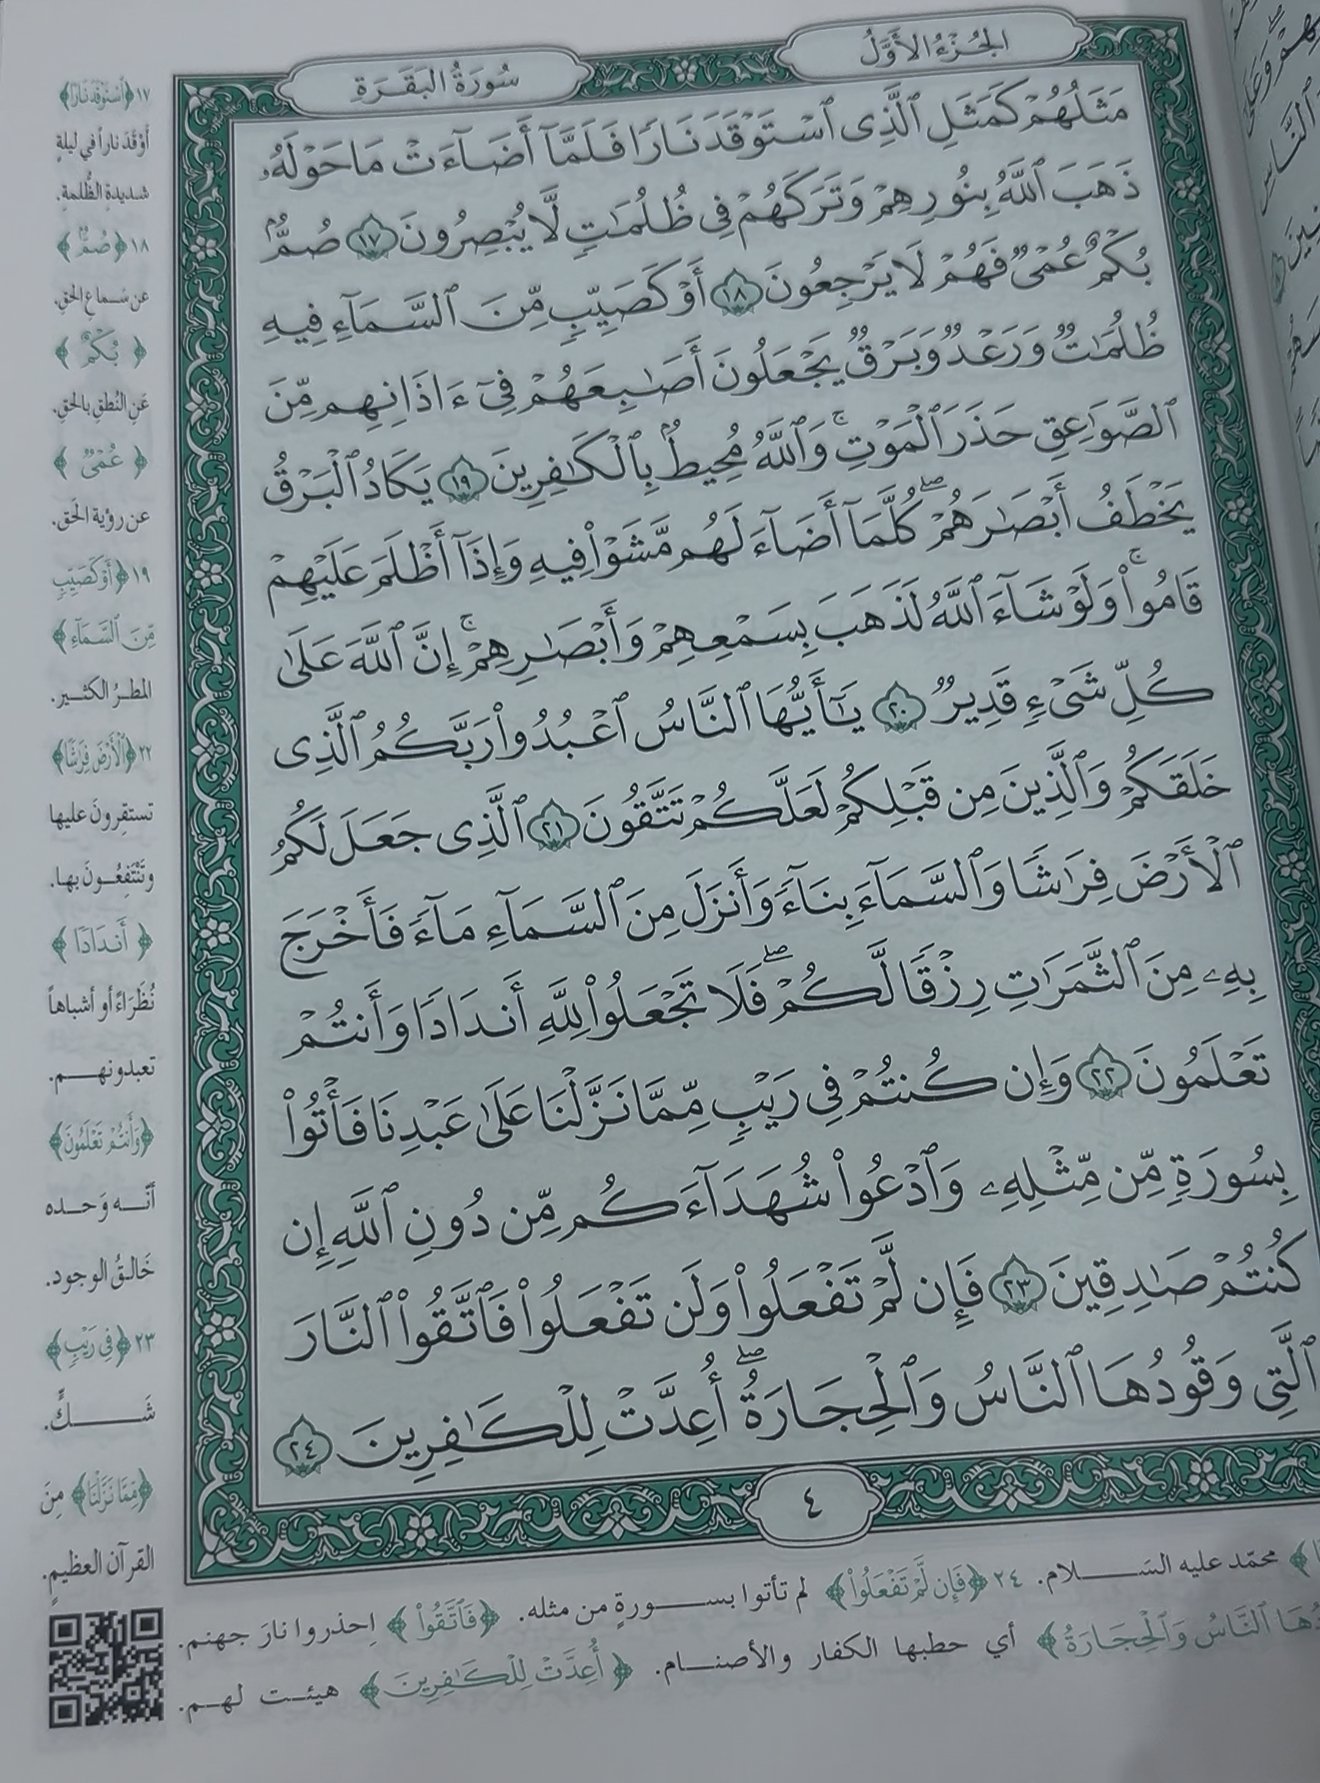 الجُزْءُ الأَوَّلُ
سُورَةُ البَقَرَةِ
مَثَلُهُمْ كَمَثَلِ ٱلَّذِى ٱسْتَوْقَدَ نَارًا فَلَمَّآ أَضَآءَتْ مَا حَوْلَهُۥ
ذَهَبَ ٱللَّهُ بِنُورِهِمْ وَتَرَكَهُمْ فِى ظُلُمَٰتٍ لَّا يُبْصِرُونَ ١٧ صُمٌّۢ
بُكْمٌ عُمْىٌ فَهُمْ لَا يَرْجِعُونَ ١٨ أَوْ كَصَيِّبٍ مِّنَ ٱلسَّمَآءِ فِيهِ
ظُلُمَٰتٌ وَرَعْدٌ وَبَرْقٌ يَجْعَلُونَ أَصَٰبِعَهُمْ فِىٓ ءَاذَانِهِم مِّنَ
ٱلصَّوَٰعِقِ حَذَرَ ٱلْمَوْتِ ۚ وَٱللَّهُ مُحِيطٌۢ بِٱلْكَٰفِرِينَ ١٩ يَكَادُ ٱلْبَرْقُ
يَخْطَفُ أَبْصَٰرَهُمْ ۖ كُلَّمَآ أَضَآءَ لَهُم مَّشَوْا۟ فِيهِ وَإِذَآ أَظْلَمَ عَلَيْهِمْ
قَامُوا۟ ۚ وَلَوْ شَآءَ ٱللَّهُ لَذَهَبَ بِسَمْعِهِمْ وَأَبْصَٰرِهِمْ ۚ إِنَّ ٱللَّهَ عَلَىٰ
كُلِّ شَىْءٍ قَدِيرٌ ٢٠ يَٰٓأَيُّهَا ٱلنَّاسُ ٱعْبُدُوا۟ رَبَّكُمُ ٱلَّذِى
خَلَقَكُمْ وَٱلَّذِينَ مِن قَبْلِكُمْ لَعَلَّكُمْ تَتَّقُونَ ٢١ ٱلَّذِى جَعَلَ لَكُمُ
ٱلْأَرْضَ فِرَٰشًا وَٱلسَّمَآءَ بِنَآءً وَأَنزَلَ مِنَ ٱلسَّمَآءِ مَآءً فَأَخْرَجَ
بِهِۦ مِنَ ٱلثَّمَرَٰتِ رِزْقًا لَّكُمْ ۖ فَلَا تَجْعَلُوا۟ لِلَّهِ أَندَادًا وَأَنتُمْ
تَعْلَمُونَ ٢٢ وَإِن كُنتُمْ فِى رَيْبٍ مِّمَّا نَزَّلْنَا عَلَىٰ عَبْدِنَا فَأْتُوا۟
بِسُورَةٍ مِّن مِّثْلِهِۦ وَٱدْعُوا۟ شُهَدَآءَكُم مِّن دُونِ ٱللَّهِ إِن
كُنتُمْ صَٰدِقِينَ ٢٣ فَإِن لَّمْ تَفْعَلُوا۟ وَلَن تَفْعَلُوا۟ فَٱتَّقُوا۟ ٱلنَّارَ
ٱلَّتِى وَقُودُهَا ٱلنَّاسُ وَٱلْحِجَارَةُ ۖ أُعِدَّتْ لِلْكَٰفِرِينَ ٢٤
٤
١٧﴿ٱسْتَوْقَدَ نَارًا﴾
أَوْقَدَ ناراً في ليلةٍ
شديدةِ الظُّلمةِ.
١٨﴿صُمٌّۢ﴾
عن سماعِ الحقِ.
﴿بُكْمٌ﴾
عَنِ النُطقِ بالحَقِ.
﴿عُمْىٌ﴾
عن رؤية الحَق.
١٩﴿أَوْ كَصَيِّبٍ
مِّنَ ٱلسَّمَآءِ﴾
المَطرُ الكثير.
٢٢﴿ٱلْأَرْضَ فِرَٰشًا﴾
تستقِرونَ عليها
وتَنْتَفِعُونَ بها.
﴿أَندَادًا﴾
نُظَرَاءً أو أشباهاً
تعبدونهم.
﴿وَأَنتُمْ تَعْلَمُونَ﴾
أنّه وَحده
خَالقُ الوجود.
٢٣﴿فِى رَيْبٍ﴾
شَكٍّ.
﴿مِّمَّا نَزَّلْنَا﴾ مِنَ
القرآن العظيمِ.
محمّد عليه السَلام. ٢٤﴿فَإِن لَّمْ تَفْعَلُوا۟﴾ لم تأتوا بسورةٍ من مثله. ﴿فَٱتَّقُوا۟﴾ اِحذروا نارَ جهنم.
ٱلنَّاسُ وَٱلْحِجَارَةُ﴾ أي حطبها الكفار والأصنام. ﴿أُعِدَّتْ لِلْكَٰفِرِينَ﴾ هيئت لهم.